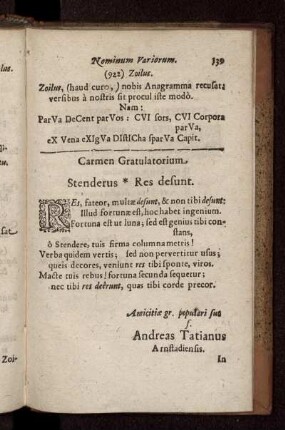 Nominum Variorum. 339
(922) Zoilus.
Zoilus, (haud curo,) nobis Anagramma recusat;
versibus à nostris sit procul iste modò.
Nam:
ParVa DeCent parVos: CVI sors, CVI Corpora
parVa,
eX Vena eXIgVa DIstICha sparVa Capit.
Carmen Gratulatorium.
Stenderus * Res desunt.
REs, fateor, multæ desunt, & non tibi desunt:
Illud fortunæ est, hoc habet ingenium.
Fortuna est ut luna; sed est genius tibi con-
stans,
ô Stendere, tuis firma columna metris!
Verba quidem vertis; sed non pervertitur usus;
queis decores, veniunt res tibi sponte, viros.
Macte tuis rebus! fortuna secunda sequetur;
nec tibi res deerunt, quas tibi corde precor.
Amicitiæ gr. populari suo
f.
Andreas Tatianus
Arnstadiensis.
In